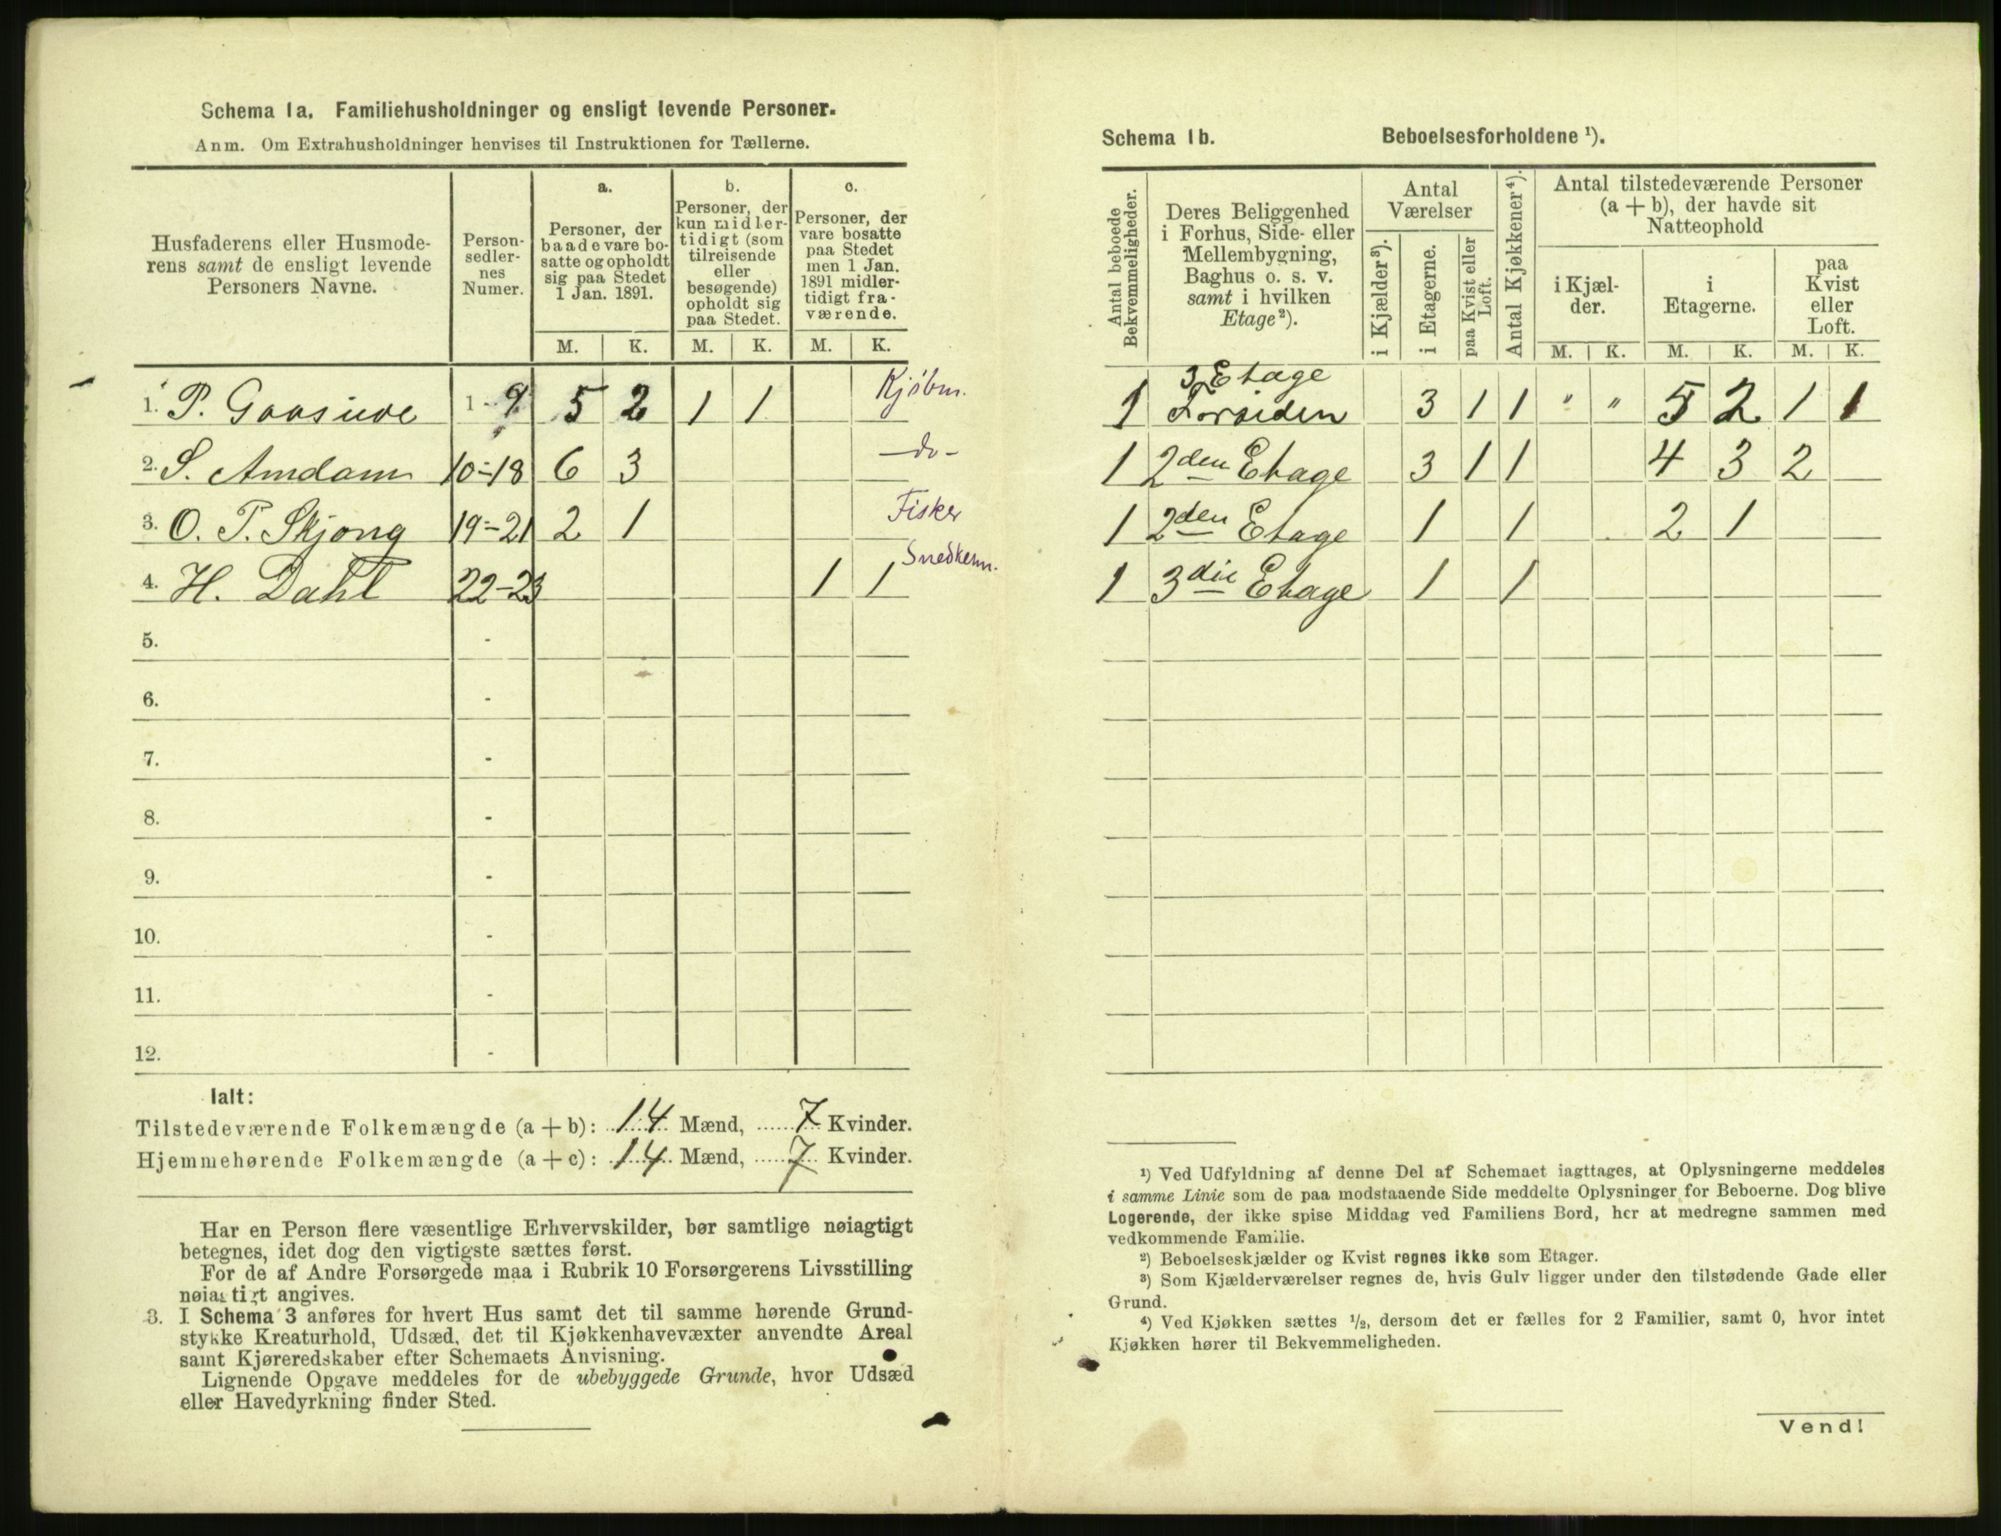 Schema 1a. Familiehusholdninger og ensligt levende Personer.
Anm. Om Extrahusholdninger henvises til Instruktionen for Tællerne.
Husfaderens eller Husmode-
rens samt de ensligt levende
Personers Navne.
Person-
sedler-
nes
Numer.
a.
Personer, der
baade vare bo-
satte og opholdt
sig paa Stedet
1 Jan. 1891.
b.
Personer, der
kun midler-
tidigt (som
tilreisende
eller
besøgende)
opholdt sig
paa Stedet.
c.
Personer, der
vare bosatte
paa Stedet
men 1 Jan.
1891 midler-
tidigt fra-
værende.
M. K. M. K. M. K.
1. P. Gaasuue 1 - 9 5 2 1 1 Kjøbm.
2. S. Amdam 10-18 6 3 -do-
3. O. P. Skjong 19-21 2 1 Fisker
4. H. Dahl 22-23 1 1 Snedkerm.
5. -
6. -
7. -
8. -
9. -
10. -
11. -
12. -
Ialt:
Tilstedeværende Folkemængde (a + b): 14 Mænd, 7 Kvinder.
Hjemmehørende Folkemængde (a + c): 14 Mænd, 7 Kvinder.
Har en Person flere væsentlige Erhvervskilder, bør samtlige nøiagtigt
betegnes, idet dog den vigtigste sættes først.
For de af Andre Forsørgede maa i Rubrik 10 Forsørgerens Livsstilling
nøiagtigt angives.
3. I Schema 3 anføres for hvert Hus samt det til samme hørende Grund-
stykke Kreaturhold, Udsæd, det til Kjøkkenhavevæxter anvendte Areal
samt Kjøreredskaber efter Schemaets Anvisning.
Lignende Opgave meddeles for de ubebyggede Grunde, hvor Udsæd
eller Havedyrkning finder Sted.
Schema 1b. Beboelsesforholdene ¹).
Antal beboede
Bekvemmeligheder.
Deres Beliggenhed
i Forhus, Side- eller
Mellembygning,
Baghus o. s. v.
samt i hvilken
Etage²).
Antal
Værelser
i Kjælder³).
i Etagerne.
paa Kvist eller
Loft.
Antal Kjøkkener⁴).
Antal tilstedeværende Personer
(a + b), der havde sit
Natteophold
i Kjæl-
der.
i
Etagerne.
paa
Kvist
eller
Loft.
M. K. M. K. M. K.
3 Etage
1 Forsiden 3 1 1 " " 5 2 1 1
1 2den Etage 3 1 1 4 3 2
1 2den Etage 1 1 2 1
1 3die Etage 1 1
¹) Ved Udfyldning af denne Del af Schemaet iagttages, at Oplysningerne meddeles
i samme Linie som de paa modstaaende Side meddelte Oplysninger for Beboerne. Dog blive
Logerende, der ikke spise Middag ved Familiens Bord, her at medregne sammen med
vedkommende Familie.
²) Beboelseskjælder og Kvist regnes ikke som Etager.
³) Som Kjælderværelser regnes de, hvis Gulv ligger under den tilstødende Gade eller
Grund.
⁴) Ved Kjøkken sættes ½, dersom det er fælles for 2 Familier, samt 0, hvor intet
Kjøkken hører til Bekvemmeligheden.
Vend!